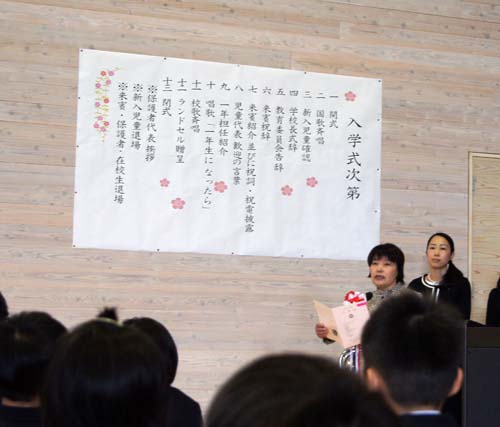 入学式次第
一 開式
二 国歌斉唱
三 新入児童確認
四 学校長式辞
五 教育委員会告辞
六 来賓祝辞
七 来賓紹介並びに祝詞・祝電披露
八 児童代表歓迎の言葉
九 一年担任紹介
十 唱歌「一年生になったら」
十一 校歌斉唱
十二 ランドセル贈呈
十三 閉式
※保護者代表挨拶
※新入児童退場
※来賓・保護者・在校生退場